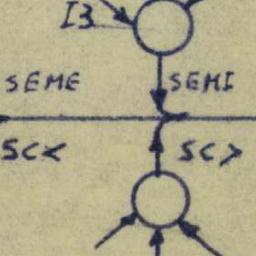 I3
SEME SEMI
SC< SC>